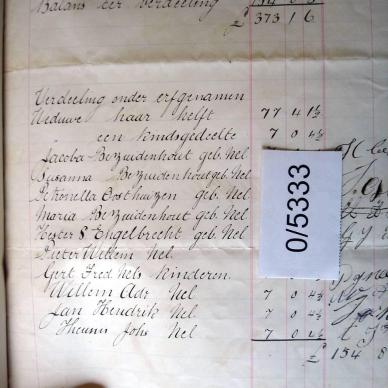 Balans ter verdeeling 154 8
£ 373 1 6
Verdeeling onder erfgenamen
Weduwe haar helft 77 4 1½
een kindsgedeelte 7 0 4½
Jacoba Bezuidenhout geb. Nel
Susanna Bezuidenhout geb. Nel
Petronella Oosthuizen geb. Nel
Maria Bezuidenhout geb. Nel
Hester S Engelbrecht geb. Nel
Pieter Willem Nel
Gert Fred Nels kinderen.
Willem Adr Nel 7 0 4½
Jan Hendrik Nel 7 0 4½
Theunis Johs Nel 7 0 4½
£ 154 8
0/5333